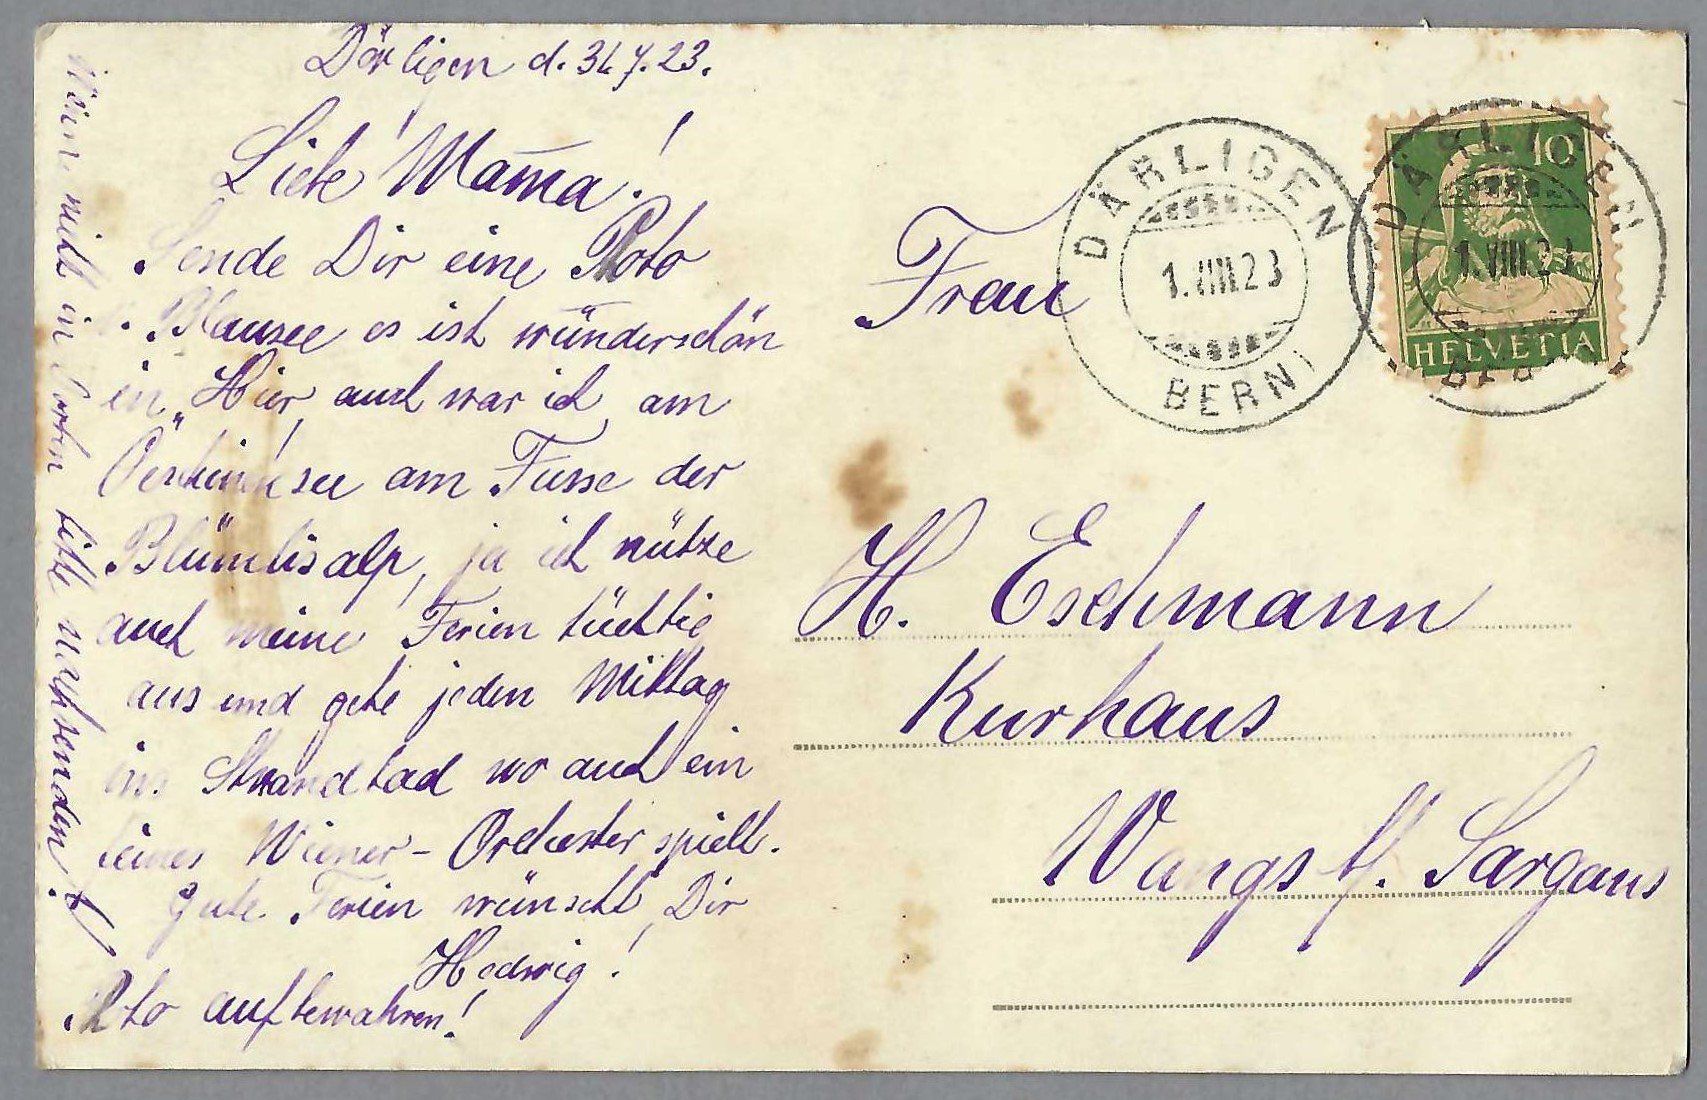 Därligen d. 31.7.23.
Liebe Mama!
Sende Dir eine Photo
v. Blausee es ist wunderschön
in, Hier auch war ich am
Oeschinensee am Fusse der
Blümlisalp, ja ich nütze
auch meine Ferien tüchtig
aus und gehe jeden Mittag
ins Strandbad wo auch ein
Wiener-Orchester spielt.
Gute Ferien wünscht Dir
Hedwig!
Photo aufbewahren!
nicht in bitte nachsenden!
Frau
H. Eschmann
Kurhaus
Wangs b/. Sargans
DÄRLIGEN
1.VIII.23
(BERN)
10
HELVETIA
DÄRLIGEN
1.VIII.23